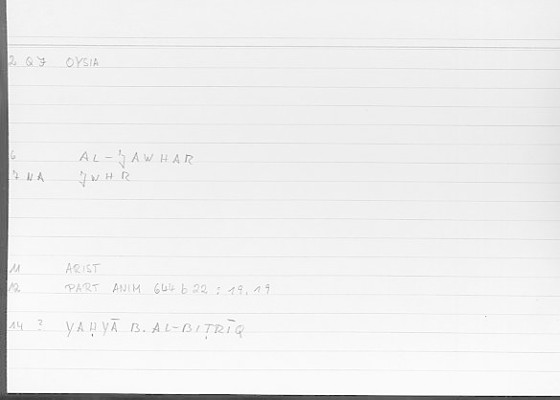 2 QJ OYSIA
6 AL-JAWHAR
7 NA JWHR
11 ARIST
12 PART ANIM 644 b 22 : 19,19
14 ? YAḤYĀ B. AL-BIṬRĪQ